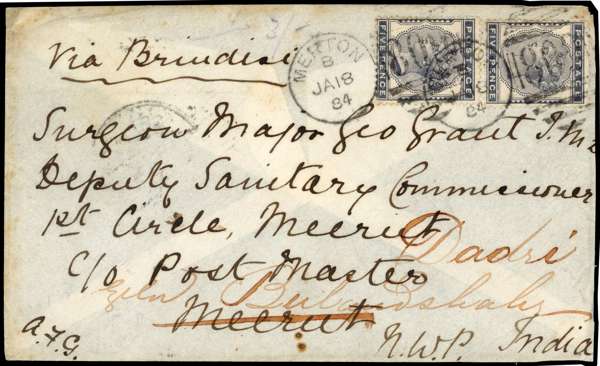 Via Brindisi
MERTON
B
JA 18
84
FIVE PENCE
POSTAGE
FIVE PENCE
POSTAGE
84
Surgeon Major Geo Grant I.M
Deputy Sanitary Commissioner
1st Circle, Meerut
Dadri
C/o Post Master
Bulandshahr
Meerut
A.F.G.
N.W.P. India